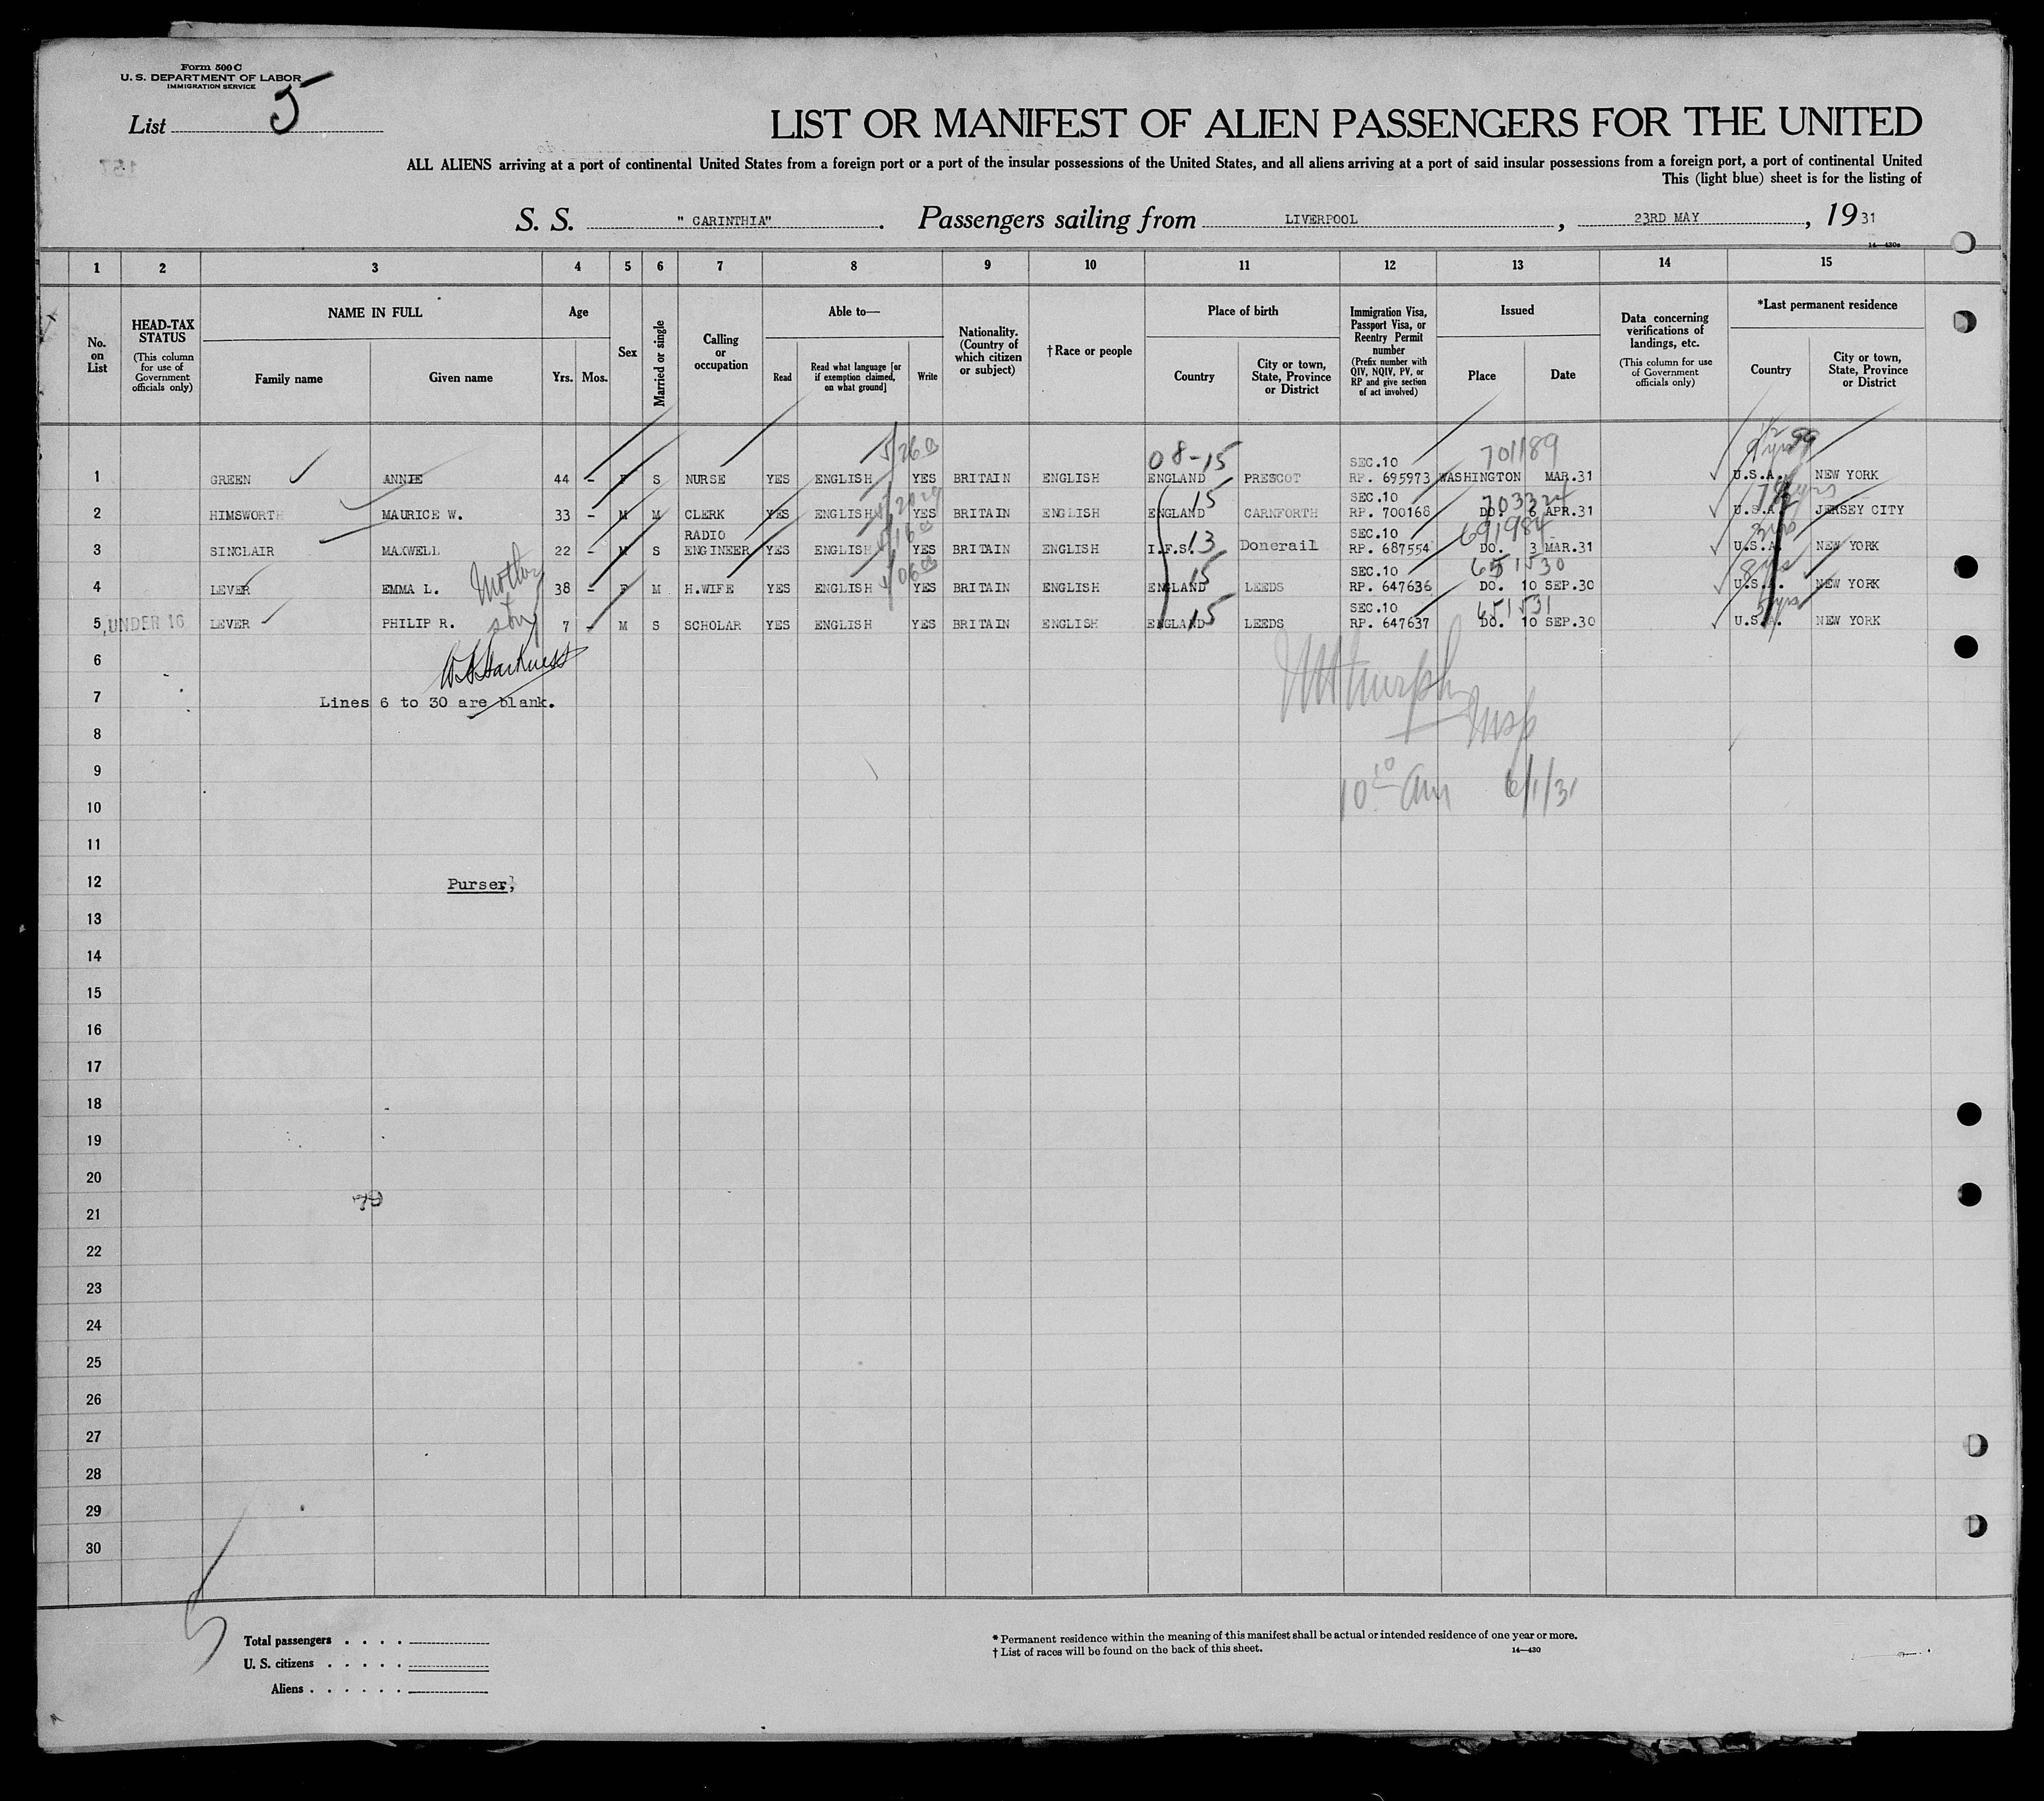 Form 500 C
U. S. DEPARTMENT OF LABOR
IMMIGRATION SERVICE
List 5
157
LIST OR MANIFEST OF ALIEN PASSENGERS FOR THE UNITED
ALL ALIENS arriving at a port of continental United States from a foreign port or a port of the insular possessions of the United States, and all aliens arriving at a port of said insular possessions from a foreign port, a port of continental United
This (light blue) sheet is for the listing of
S. S. " CARINTHIA" . Passengers sailing from LIVERPOOL , 23RD MAY , 19 31
14—430a
1 2 3 4 5 6 7 8 9 10 11 12 13 14 15
No. on List
HEAD-TAX STATUS (This column for use of Government officials only)
NAME IN FULL
Family name Given name
Age
Yrs. Mos.
Sex
Married or single
Calling or occupation
Able to—
Read Read what language [or if exemption claimed, on what ground] Write
Nationality. (Country of which citizen or subject)
† Race or people
Place of birth
Country City or town, State, Province or District
Immigration Visa, Passport Visa, or Reentry Permit number (Prefix number with QIV, NQIV, PV, or RP and give section of act involved)
Issued
Place Date
Data concerning verifications of landings, etc. (This column for use of Government officials only)
*Last permanent residence
Country City or town, State, Province or District
5/26 08-15 SEC.10 701189
1 GREEN ANNIE 44 - F S NURSE YES ENGLISH YES BRITAIN ENGLISH ENGLAND PRESCOT RP. 695973 WASHINGTON MAR.31 U.S.A. NEW YORK
15 SEC.10
2 HIMSWORTH MAURICE W. 33 - M M CLERK YES ENGLISH YES BRITAIN ENGLISH ENGLAND CARNFORTH RP. 700168 DO. 6 APR.31 U.S.A. JERSEY CITY
RADIO 13 SEC.10 691984 3yrs
3 SINCLAIR MAXWELL 22 - M S ENGINEER YES ENGLISH YES BRITAIN ENGLISH I.F.S. Donerail RP. 687554 DO. 3 MAR.31 U.S.A. NEW YORK
Mother 15 SEC.10 651530 8yrs
4 LEVER EMMA L. 38 - F M H.WIFE YES ENGLISH YES BRITAIN ENGLISH ENGLAND LEEDS RP. 647636 DO. 10 SEP.30 U.S.A. NEW YORK
15 SEC.10 651531
5 UNDER 16 LEVER PHILIP R. 7 - M S SCHOLAR YES ENGLISH YES BRITAIN ENGLISH ENGLAND LEEDS RP. 647637 DO. 10 SEP.30 U.S.A. NEW YORK
6
7 Lines 6 to 30 are blank.
Insp
8
9
10 10 10 am 6/1/31
11
12 Purser,
13
14
15
16
17
18
19
20
21
22
23
24
25
26
27
28
29
30
5
Total passengers . . . .
U. S. citizens . . . . .
Aliens . . . . . .
* Permanent residence within the meaning of this manifest shall be actual or intended residence of one year or more.
† List of races will be found on the back of this sheet.
14—430